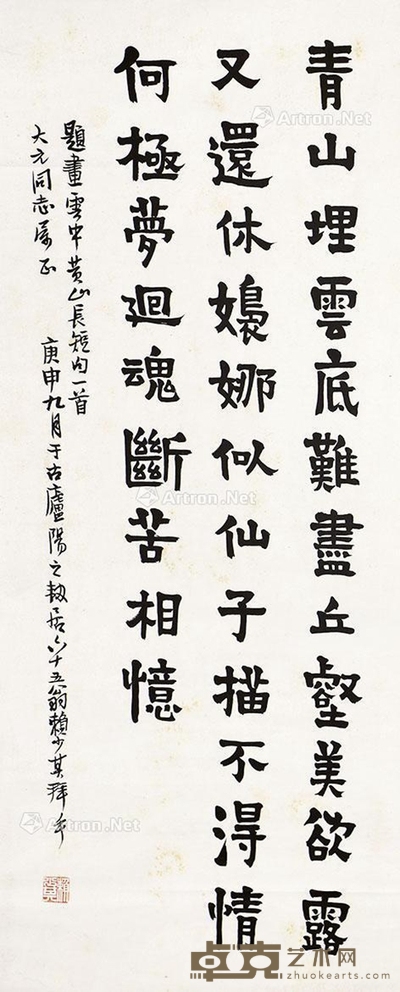 青山埋雲底難盡丘壑美欲露
又還休嬝娜似仙子描不得情
何極夢迴魂斷苦相憶
題畫雲中黃山長短句一首
大元同志屬正
庚申九月于古廬陽之
居六十五翁賴少其拜手
Artron.Net
卓克艺术网
www.zhuokearts.com